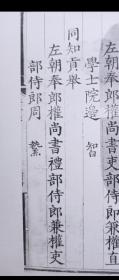 左朝奉郎權尚書吏部侍郎兼權直
學士院邊 知
同知貢舉
左朝奉郎權尚書禮部侍郎兼權吏
部侍郎周 執